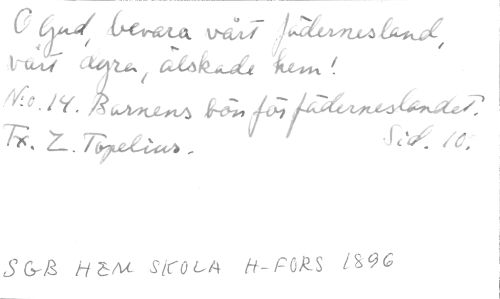 O Gud, bevara vårt fädernesland,
vårt dyra, älskade hem!
N:o. 14. Barnens bön för fäderneslandet.
Tx. Z. Topelius. Sid. 10.
SGB HEM SKOLA H-FORS 1896